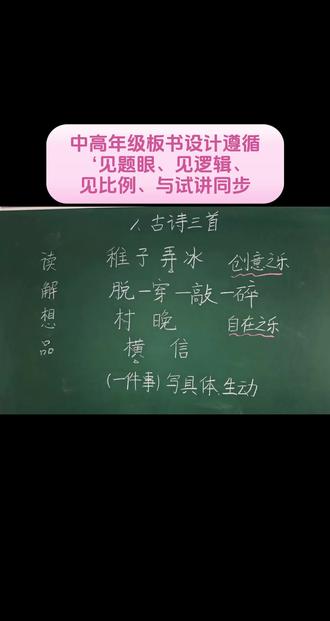 中高年级板书设计遵循
‘见题眼、见逻辑、
见比例、与试讲同步
1.古诗三首
读 稚子弄冰 创意之乐
解 脱一穿一敲一碎
想 村 晚 自在之乐
品 横 信
(一件事)写具体、生动